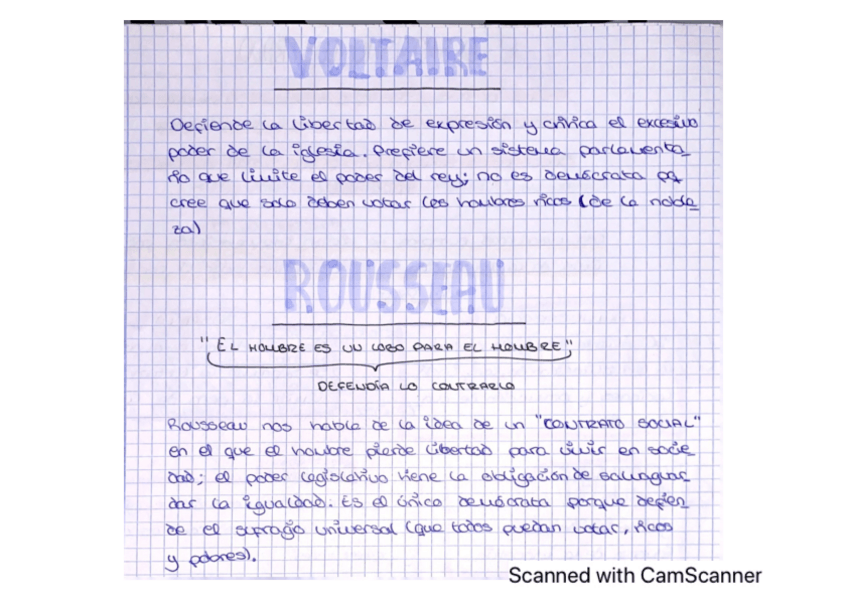 VOLTAIRE
Defiende la libertad de expresión y critica el excesivo
poder de la iglesia. Prefiere un sistema parlamenta_
rio que limite el poder del rey; no es demócrata pq
cree que solo deben votar los hombres ricos (de la noble_
za)
ROUSSEAU
"EL HOMBRE ES UN LOBO PARA EL HOMBRE"
DEFENDÍA LO CONTRARIO
Rousseau nos habla de la idea de un "CONTRATO SOCIAL"
en el que el hombre pierde libertad para vivir en socie_
dad; el poder legislativo tiene la obligación de salvaguar_
dar la igualdad. Es el único demócrata porque defien_
de el sufragio universal (que todos puedan votar, ricos
y pobres).
Scanned with CamScanner